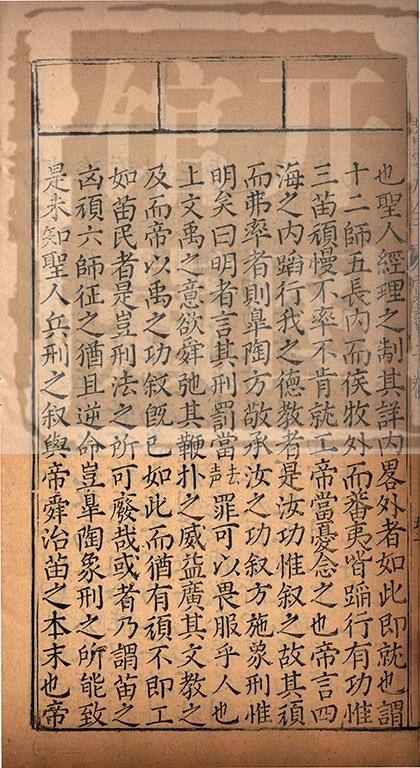 也聖人經理之制其詳內畧外者如此即就也謂
十二師五長內而侯牧外而蕃夷皆蹈行有功惟
三苗頑慢不率不肯就工帝當憂念之也帝言四
海之內蹈行我之德教者是汝功惟叙之故其頑
而弗率者則臯陶方敬承汝之功叙方施象刑惟
明矣曰明者言其刑罰當去声罪可以畏服乎人也
上文禹之意欲舜弛其鞭扑之威益廣其文教之
及而帝以禹之功叙旣已如此而猶有頑不即工
如苗民者是豈刑法之所可廢哉或者乃謂苗之
凶頑六師征之猶且逆命豈臯陶象刑之所能致
是未知聖人兵刑之叙與帝舜治苗之本末也帝